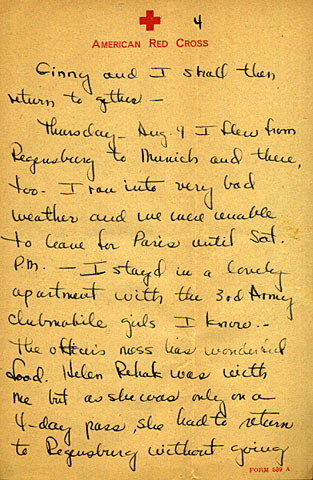 4
AMERICAN RED CROSS
Ginny and I shall then
return together –
Thursday – Aug. 9 I flew from
Regensburg to Munich and there,
too – I ran into very bad
weather and we were unable
to leave for Paris until Sat.
P.M. – I stayd in a lovely
apartment with the 3rd Army
clubmobile girls I know. –
The officers mess has wonderful
food. Helen Rehak was with
me but as she was only on a
4-day pass, she had to return
to Regensburg without going
FORM 539 A